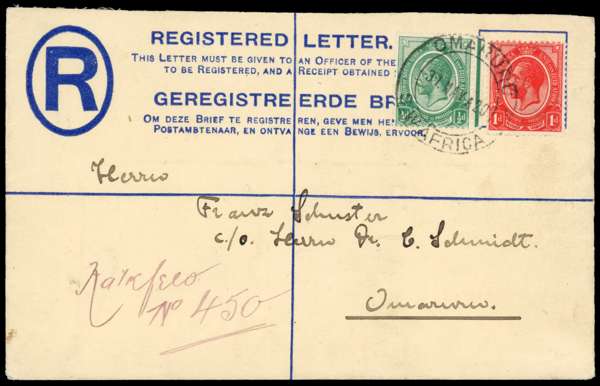 REGISTERED LETTER.
THIS LETTER MUST BE GIVEN TO AN OFFICER OF THE
TO BE REGISTERED, AND A RECEIPT OBTAINED
R
GEREGISTREERDE BR
OM DEZE BRIEF TE REGISTREREN, GEVE MEN HE
POSTAMBTENAAR, EN ONTVANGE EEN BEWIJS, ERVOOR
AFRICA
½d
1d
Herrn
Franz Schuster
c/o. Herrn Dr. C. Schmidt.
Omaruru.
Karkfeld
No 450